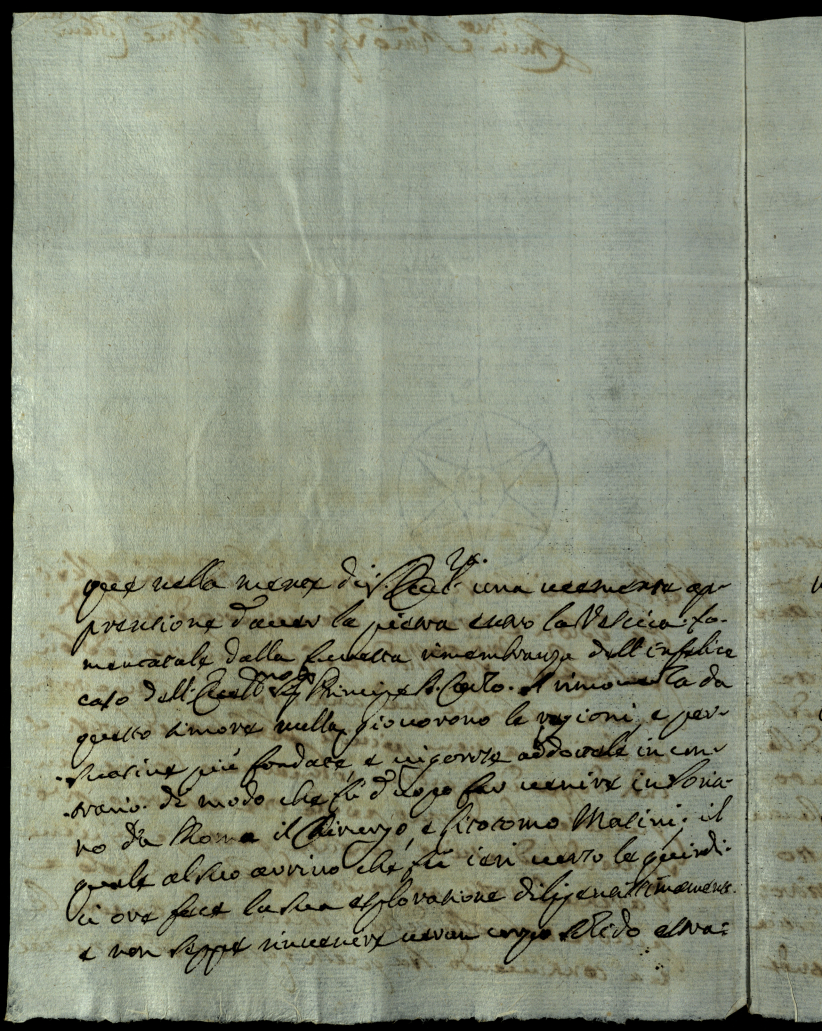 que nella mente di S. Ecc.ª una veemente ap-
prensione d'aver la pietra entro la Vescica fo-
mentatale dalla funesta rimembranza dell'infelice
caso dell'Ecc.mo Sig. Principe D. Carlo. A rimoverla da
questo timore nulla giovorono le ragioni, e per-
suasive più fondate, e vigorose addottale in con-
trario. di modo che fù d'uopo far venire in Soria-
no da Roma il Chirurgo, e Litotomo Masini; il
quale al suo arrivo che fù ieri verso le quindi-
ci ore fece la sua esplorazione diligentissimamente
e non seppe rinvenire verun corpo solido estra-